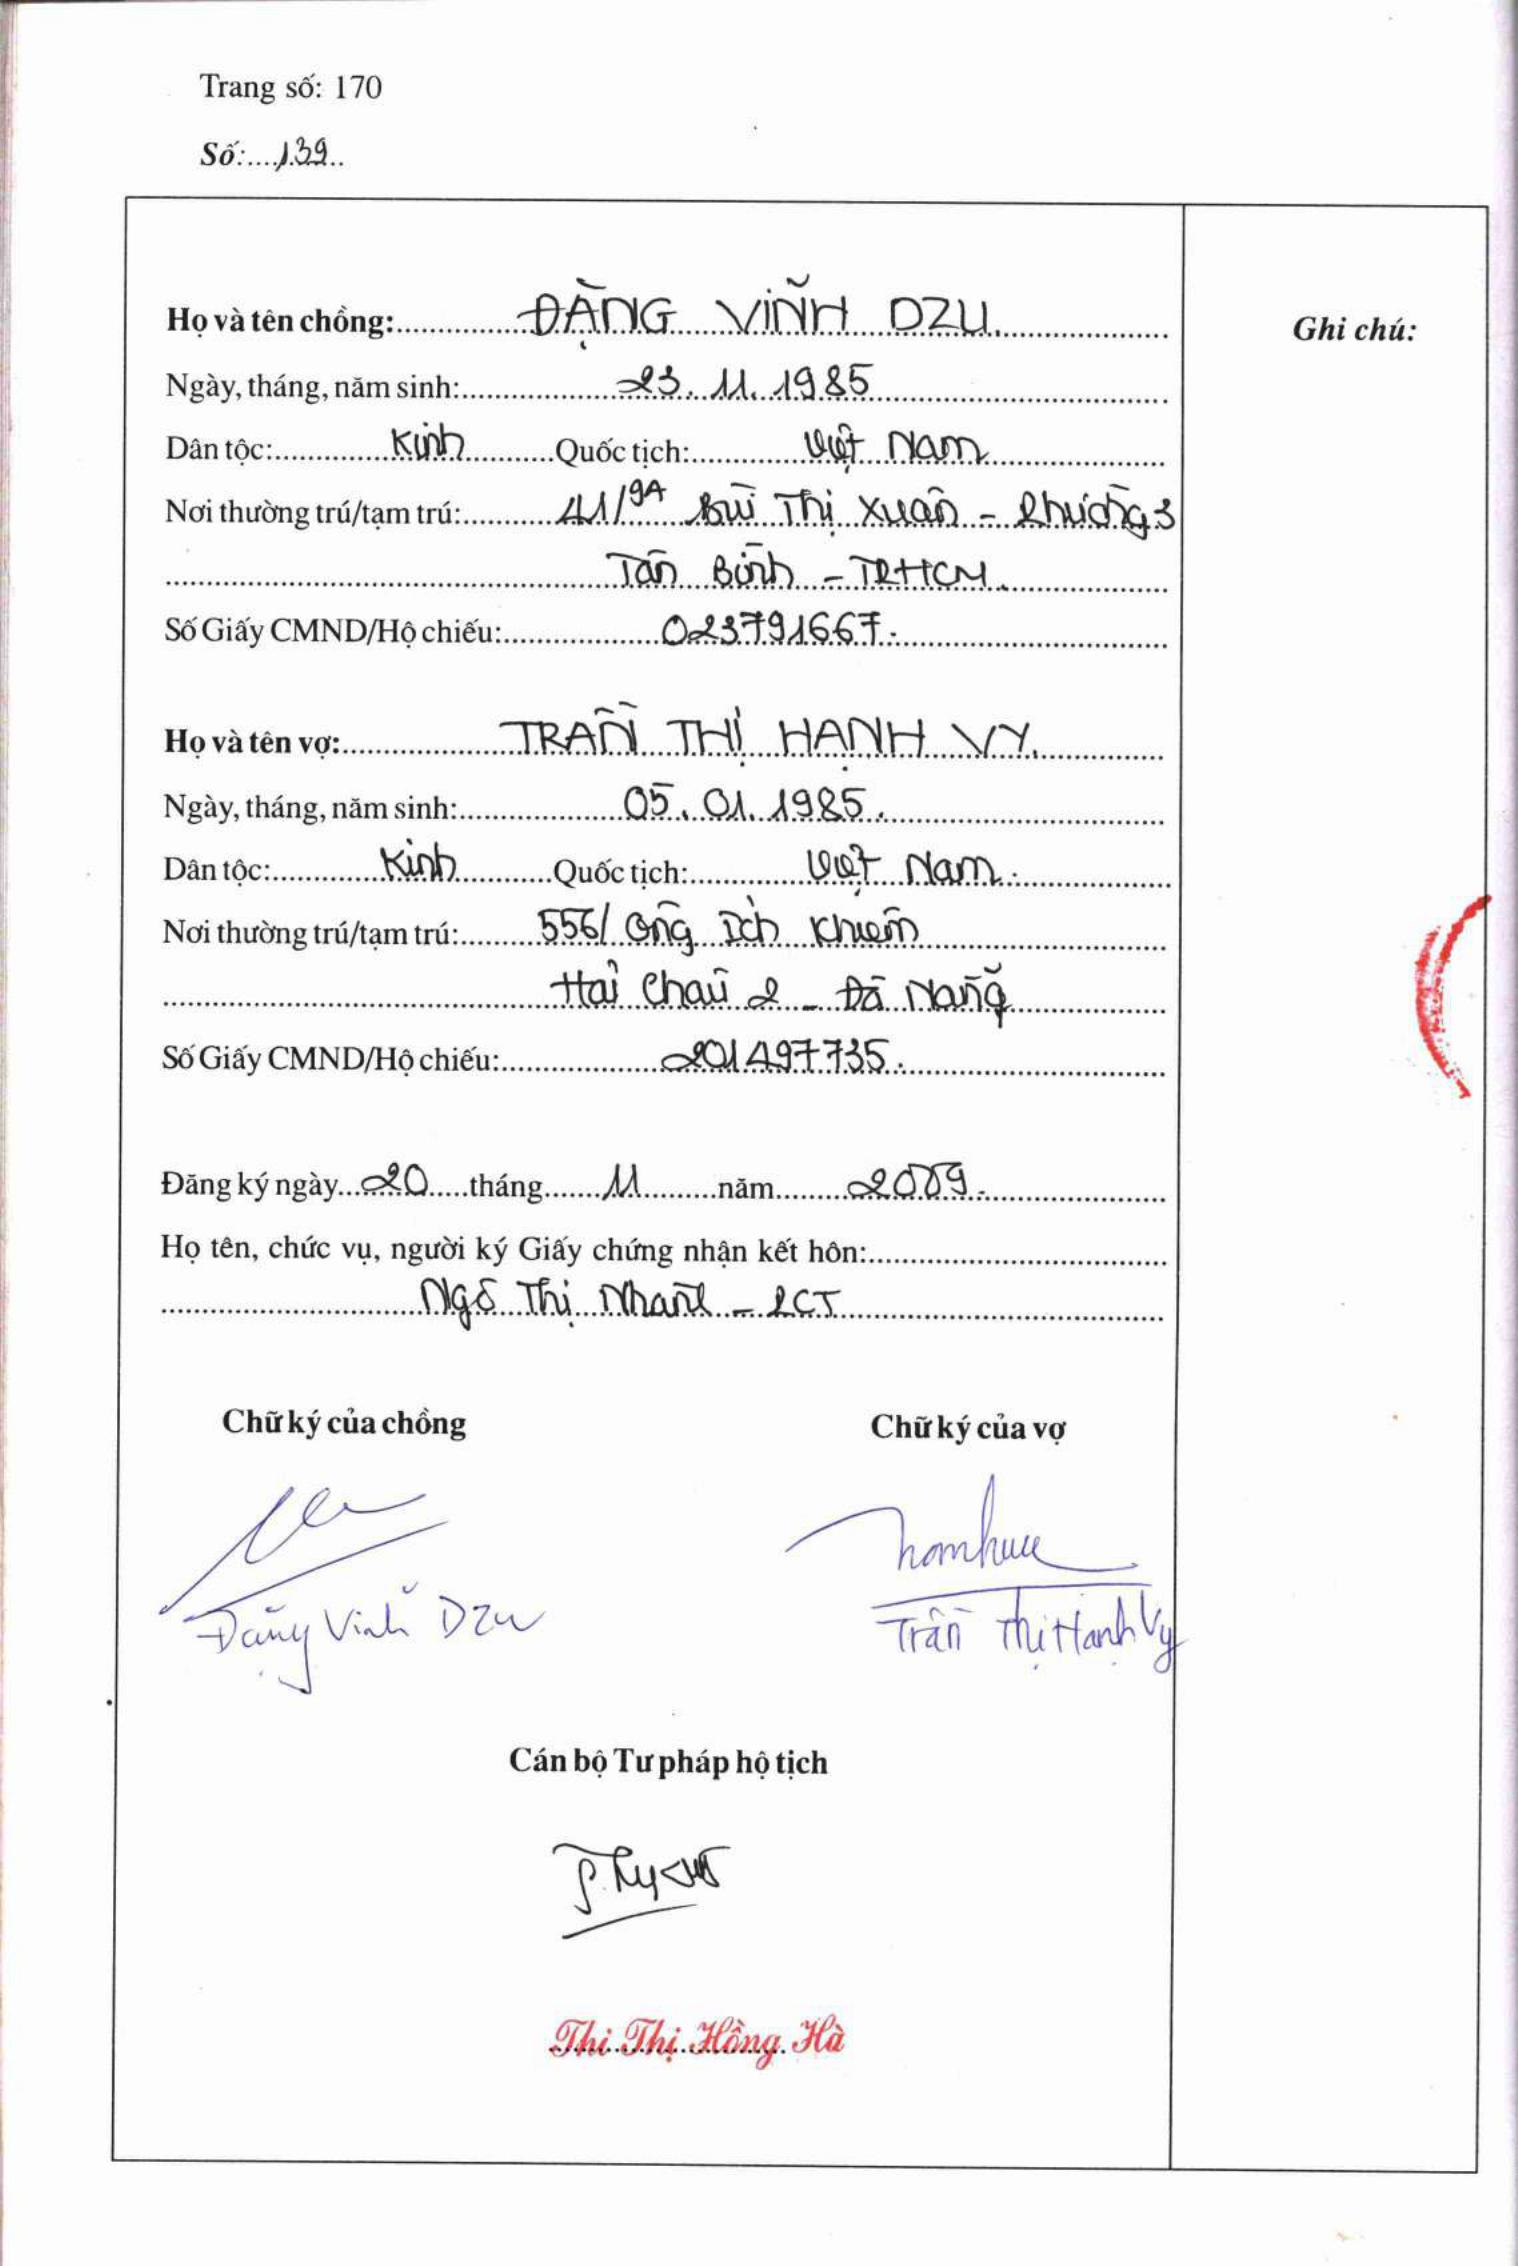 Trang số: 170
Số: 139
Họ và tên chồng: ĐẶNG VĨNH DZU
Ghi chú:
Ngày, tháng, năm sinh: 23.11.1985
Dân tộc: Kinh Quốc tịch: Việt Nam
Nơi thường trú/tạm trú: 41/9A Bùi Thị Xuân - Phường 3
Tân Bình - TPHCM
Số Giấy CMND/Hộ chiếu: 023791667.
Họ và tên vợ: TRẦN THỊ HẠNH VY.
Ngày, tháng, năm sinh: 05.01.1985.
Dân tộc: Kinh Quốc tịch: Việt Nam.
Nơi thường trú/tạm trú: 556/ Ông Ích Khiêm
Hải Châu 2 - Đà Nẵng
Số Giấy CMND/Hộ chiếu: 201497735.
Đăng ký ngày 20 tháng 11 năm 2009.
Họ tên, chức vụ, người ký Giấy chứng nhận kết hôn:
Ngô Thị Nhanh - PCT
Chữ ký của chồng Chữ ký của vợ
Đặng Vĩnh Dzu Trần Thị Hạnh Vy
Cán bộ Tư pháp hộ tịch
Thi Thị Hồng Hà